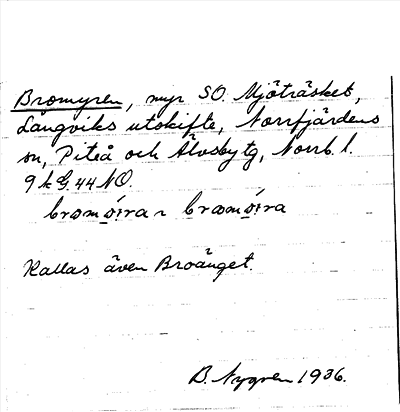 Bromyren, myr SO. Mjöträsket,
Långviks utskifte, Norrfjärdens
sn, Piteå och Älvsby tg, Norrb. l.
9 k G. 44 NO.
Kallas även Broänget.
B. Nygren 1936.